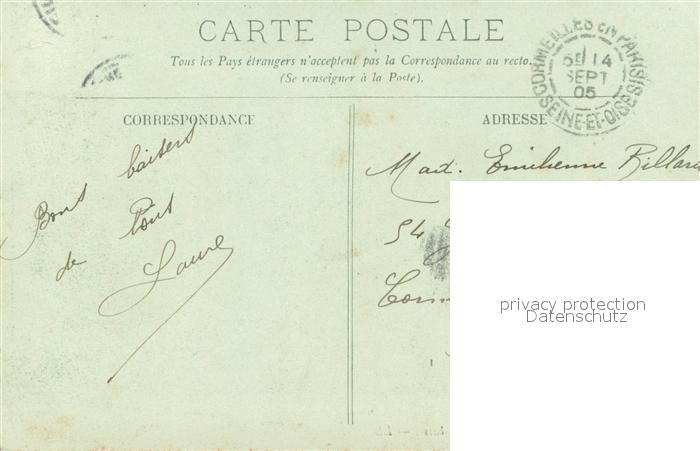 CARTE POSTALE
Tous les Pays étrangers n'acceptent pas la Correspondance au recto.
(Se renseigner à la Poste).
CORMEILLES EN PARISIS
14
SEPT
05
SEINE-ET-OISE
CORRESPONDANCE
ADRESSE
Bons baisers
de Tous
Laure
Mad. Emilienne
54
privacy protection
Datenschutz